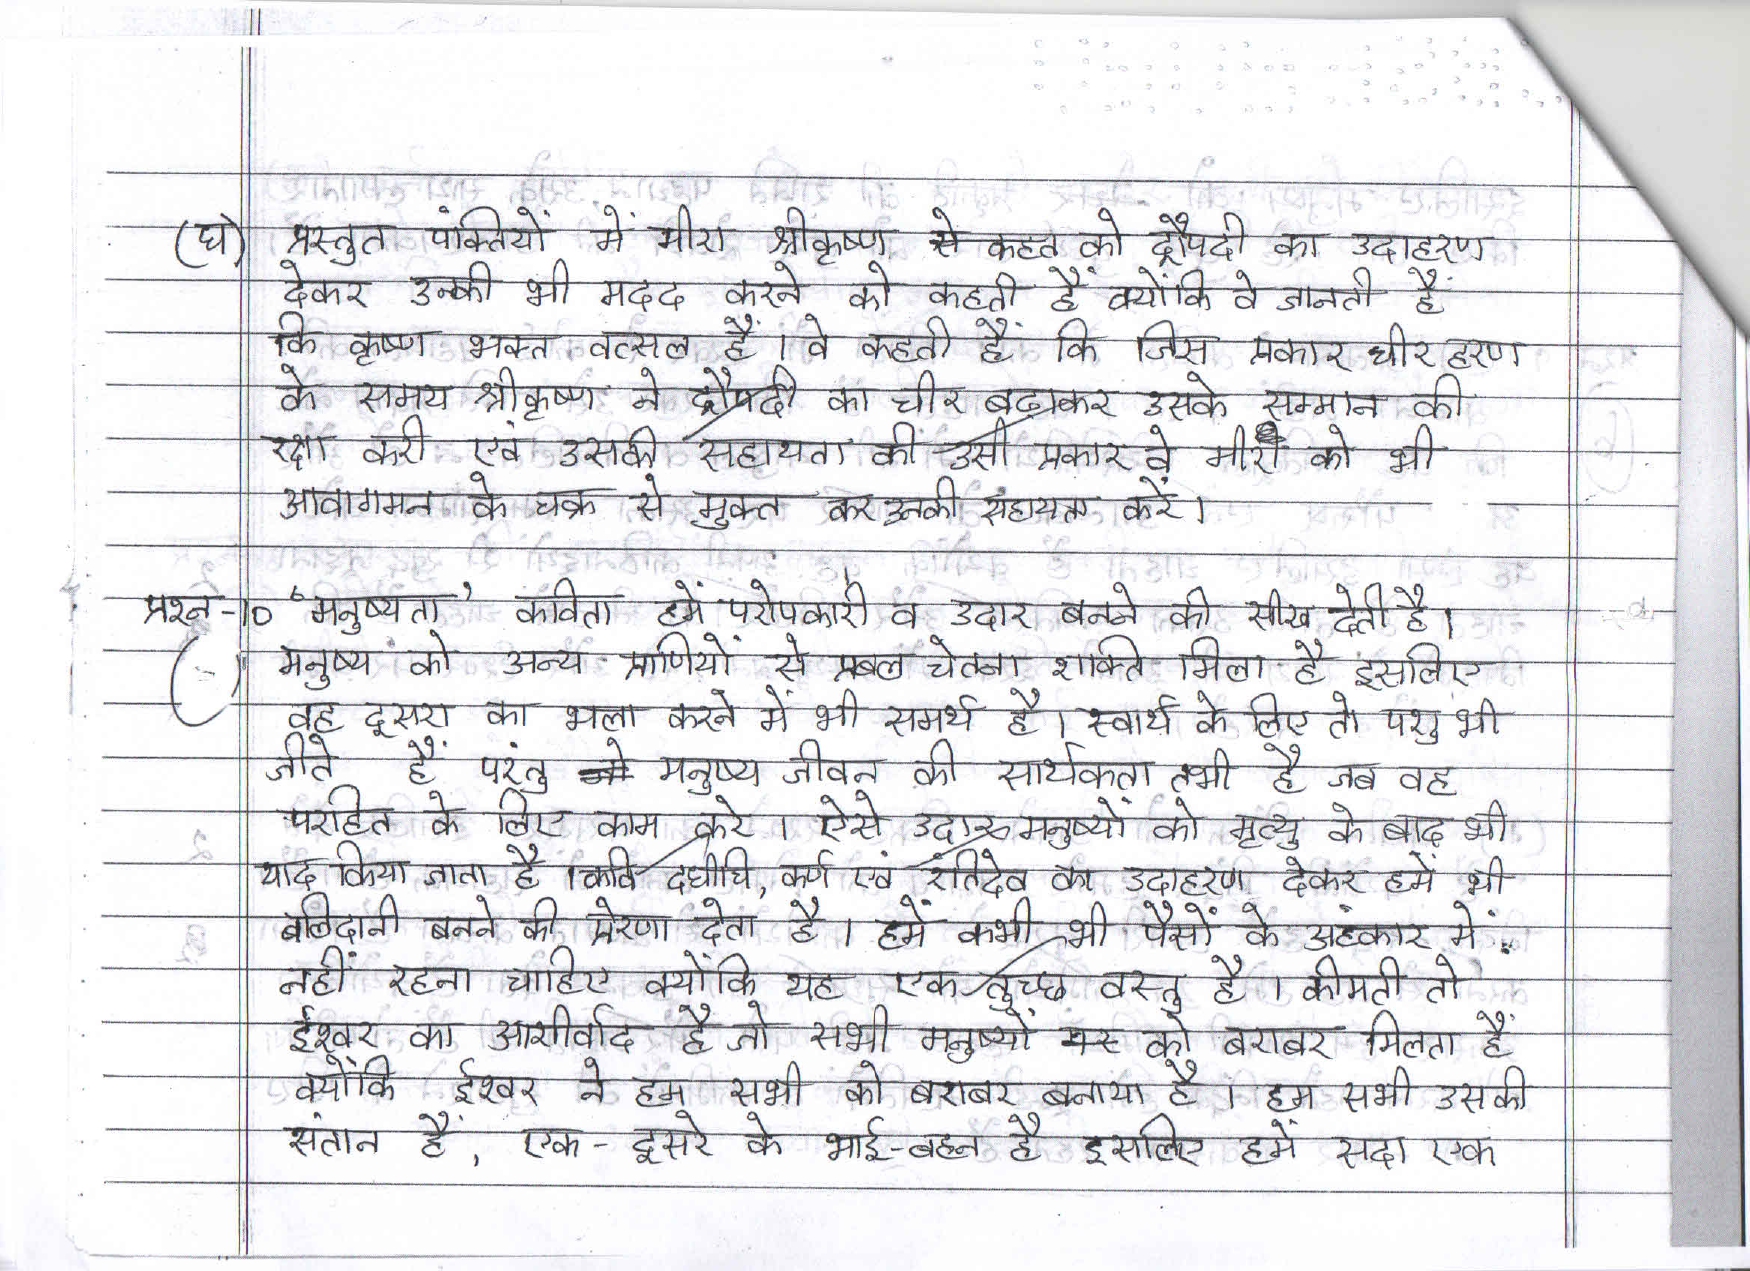 (घ) प्रस्तुत पंक्तियों में मीरा श्रीकृष्ण से कहत को द्रौपदी का उदाहरण
देकर उनकी भी मदद करने को कहती हैं क्योंकि वे जानती हैं
कि कृष्ण भक्त वत्सल हैं। वे कहती हैं कि जिस प्रकार चीर हरण
के समय श्रीकृष्ण ने द्रौपदी का चीर बढ़ाकर उसके सम्मान की
रक्षा करी एवं उसकी सहायता की उसी प्रकार वे मीरा को भी
आवागमन के चक्र से मुक्त कर उनकी सहायता करें।
प्रश्न-10 'मनुष्यता' कविता हमें परोपकारी व उदार बनने की सीख देती है।
मनुष्य को अन्य प्राणियों से प्रबल चेतना शक्ति मिला है इसलिए
वह दूसरा का भला करने में भी समर्थ है। स्वार्थ के लिए तो पशु भी
जीते हैं परंतु मनुष्य जीवन की सार्थकता तभी है जब वह
परहित के लिए काम करे। ऐसे उदार मनुष्यों को मृत्यु के बाद भी
याद किया जाता है। कवि दधीचि, कर्ण एवं रंतिदेव का उदाहरण देकर हमें भी
बलिदानी बनने की प्रेरणा देता है। हमें कभी भी पैसों के अहंकार में
नहीं रहना चाहिए क्योंकि यह एक तुच्छ वस्तु है। कीमती तो
ईश्वर का आशीर्वाद है जो सभी मनुष्यों को बराबर मिलता है
क्योंकि ईश्वर ने हम सभी को बराबर बनाया है। हम सभी उसकी
संतान हैं, एक-दूसरे के भाई-बहन हैं इसलिए हमें सदा एक